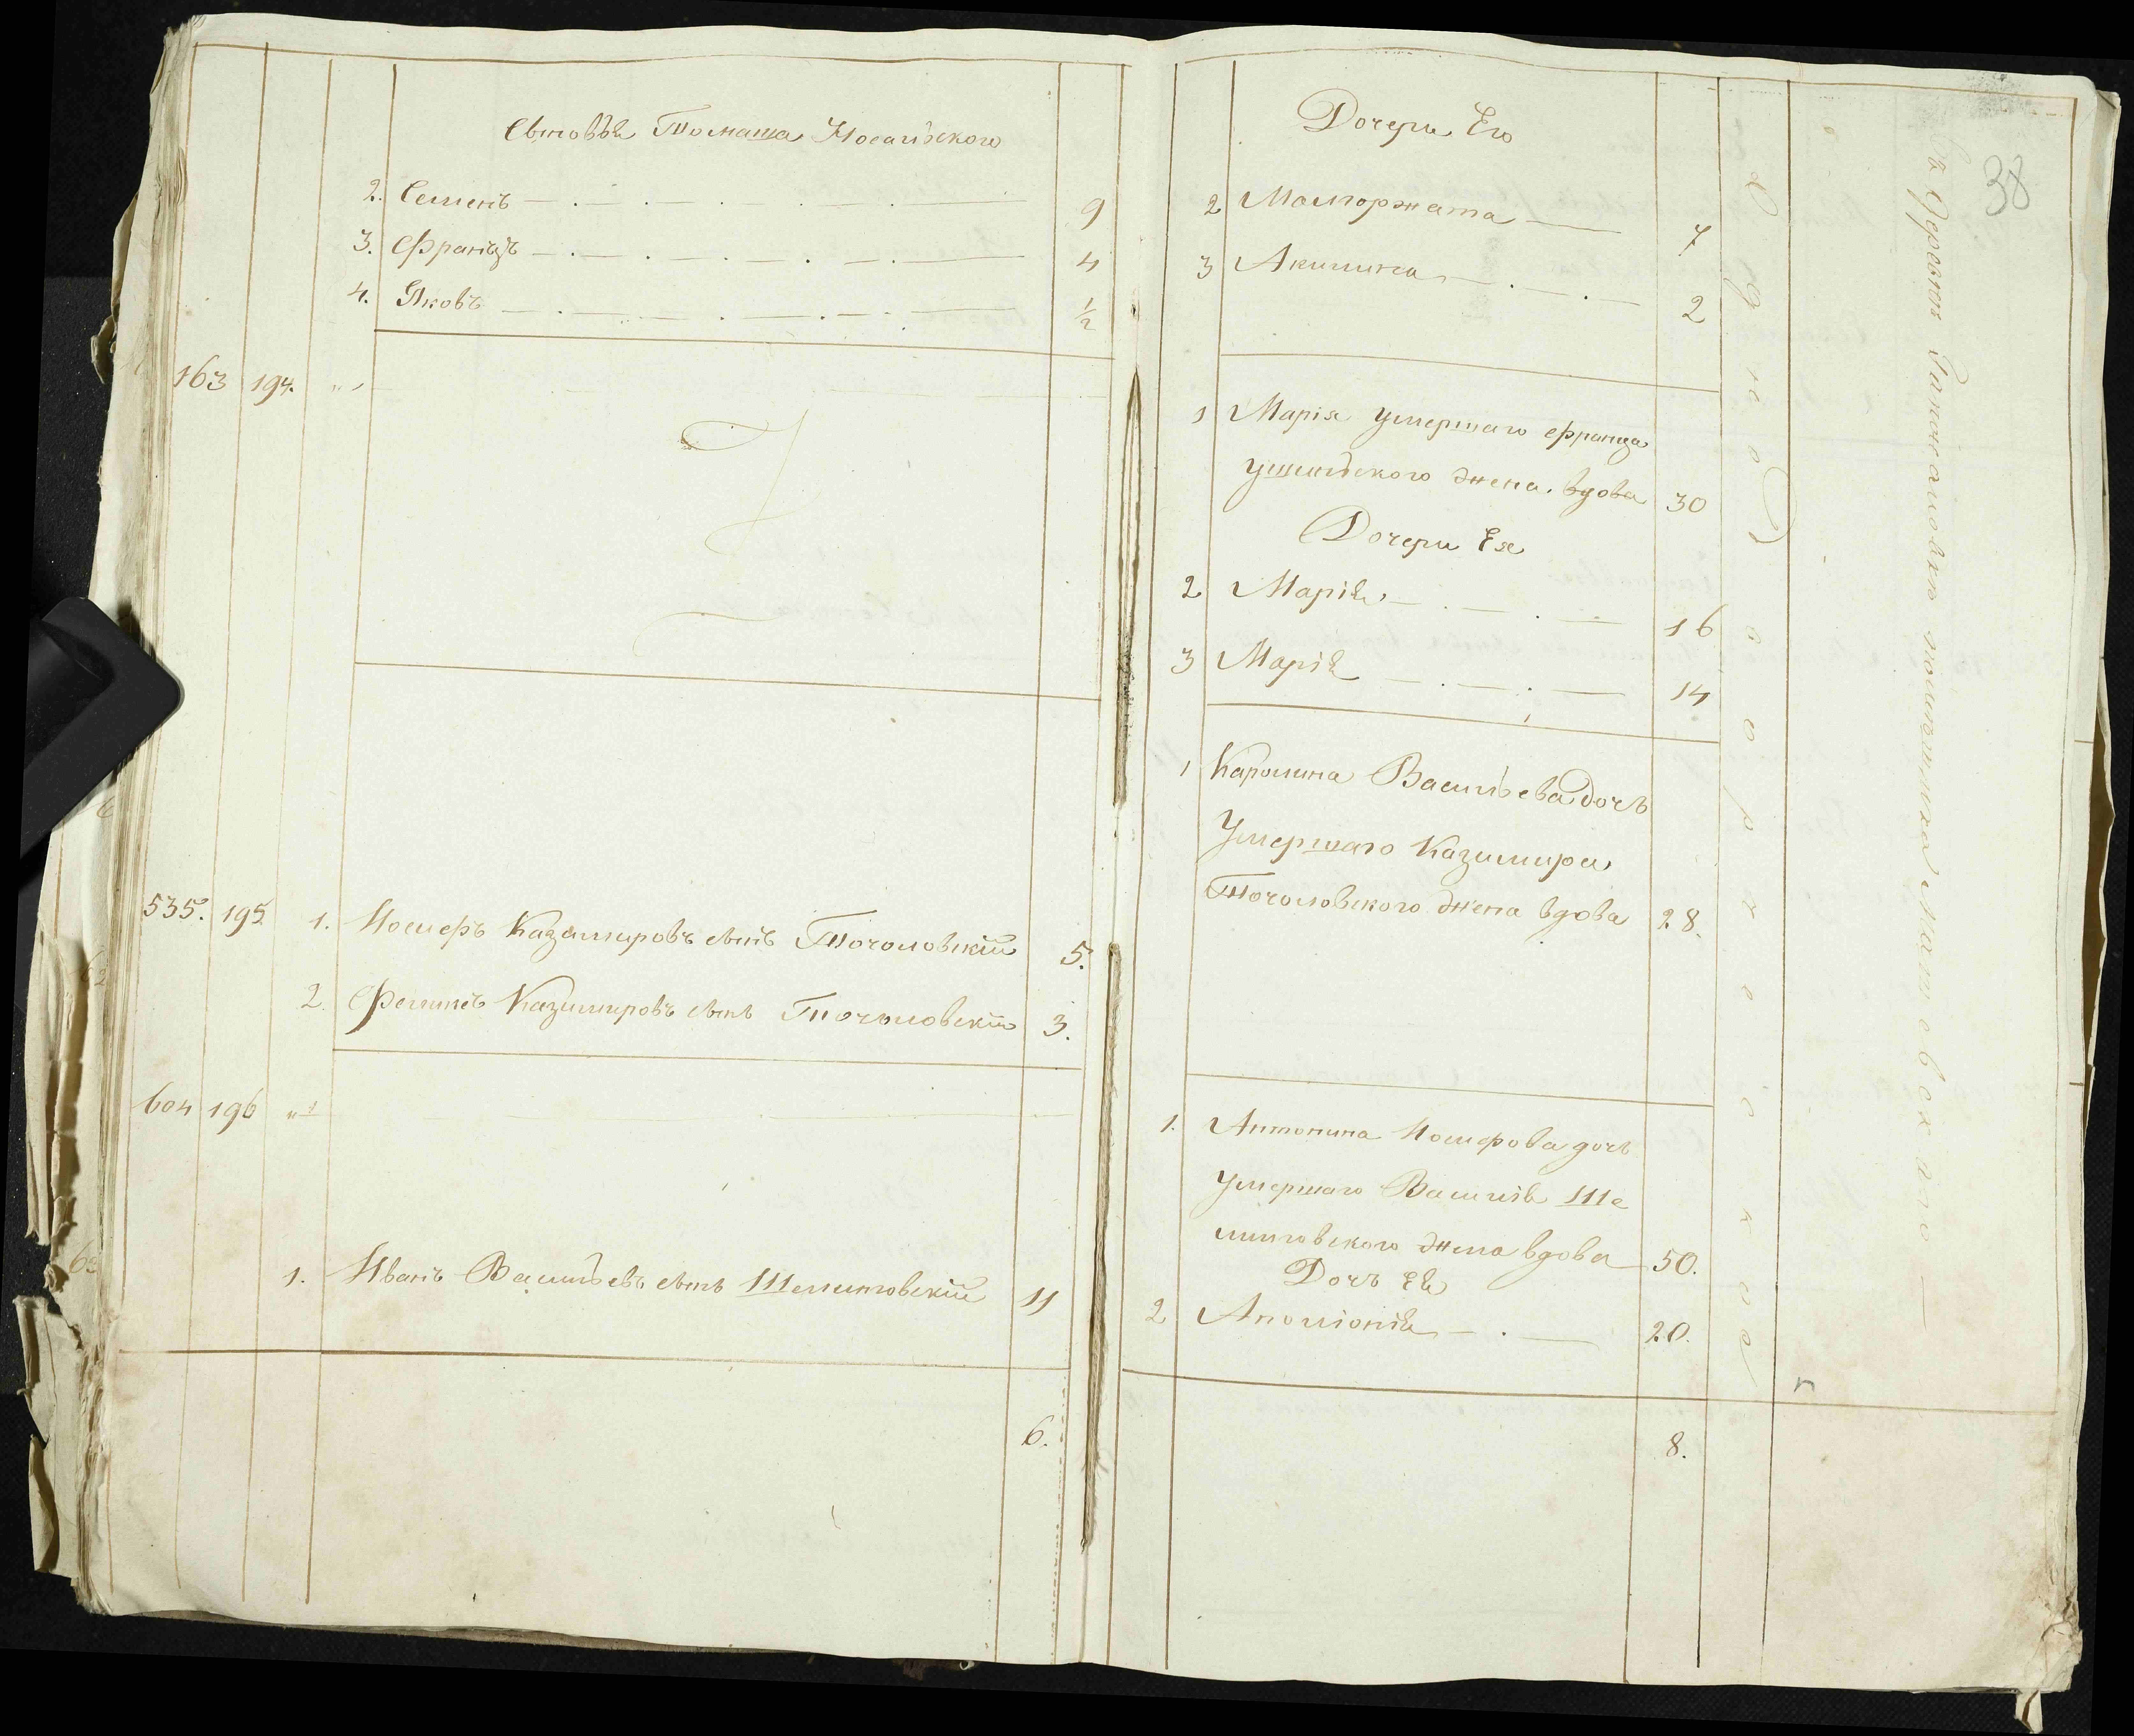 Сыновья Томаша Носальского
2. Семенъ 9
3. Францъ 4
4. Яковъ ½
163 194.
535. 195 1. Іосифъ Казимировъ сынъ Точоловскій 5.
2. Феликсъ Казимировъ сынъ Точоловскій 3.
604 196
1. Иванъ Васильевъ сынъ Шелитовскій 11
6.
38
Дочери Его
2 Малгоржата 7
3 Акилина 2
1 Марія умершаго Франца
жена вдова 30
Дочери Ея
2 Марія 16
3 Марія 14
1 Каролина Васильева дочь
Умершаго Казимира
Точоловского жена вдова 28.
1. Антонина Іосифова дочь
умершаго Василія Ше
литовского жена вдова 50.
Дочь Ея
2 Аполіонія 20.
8.
Однодворческое
въ Деревне помещика